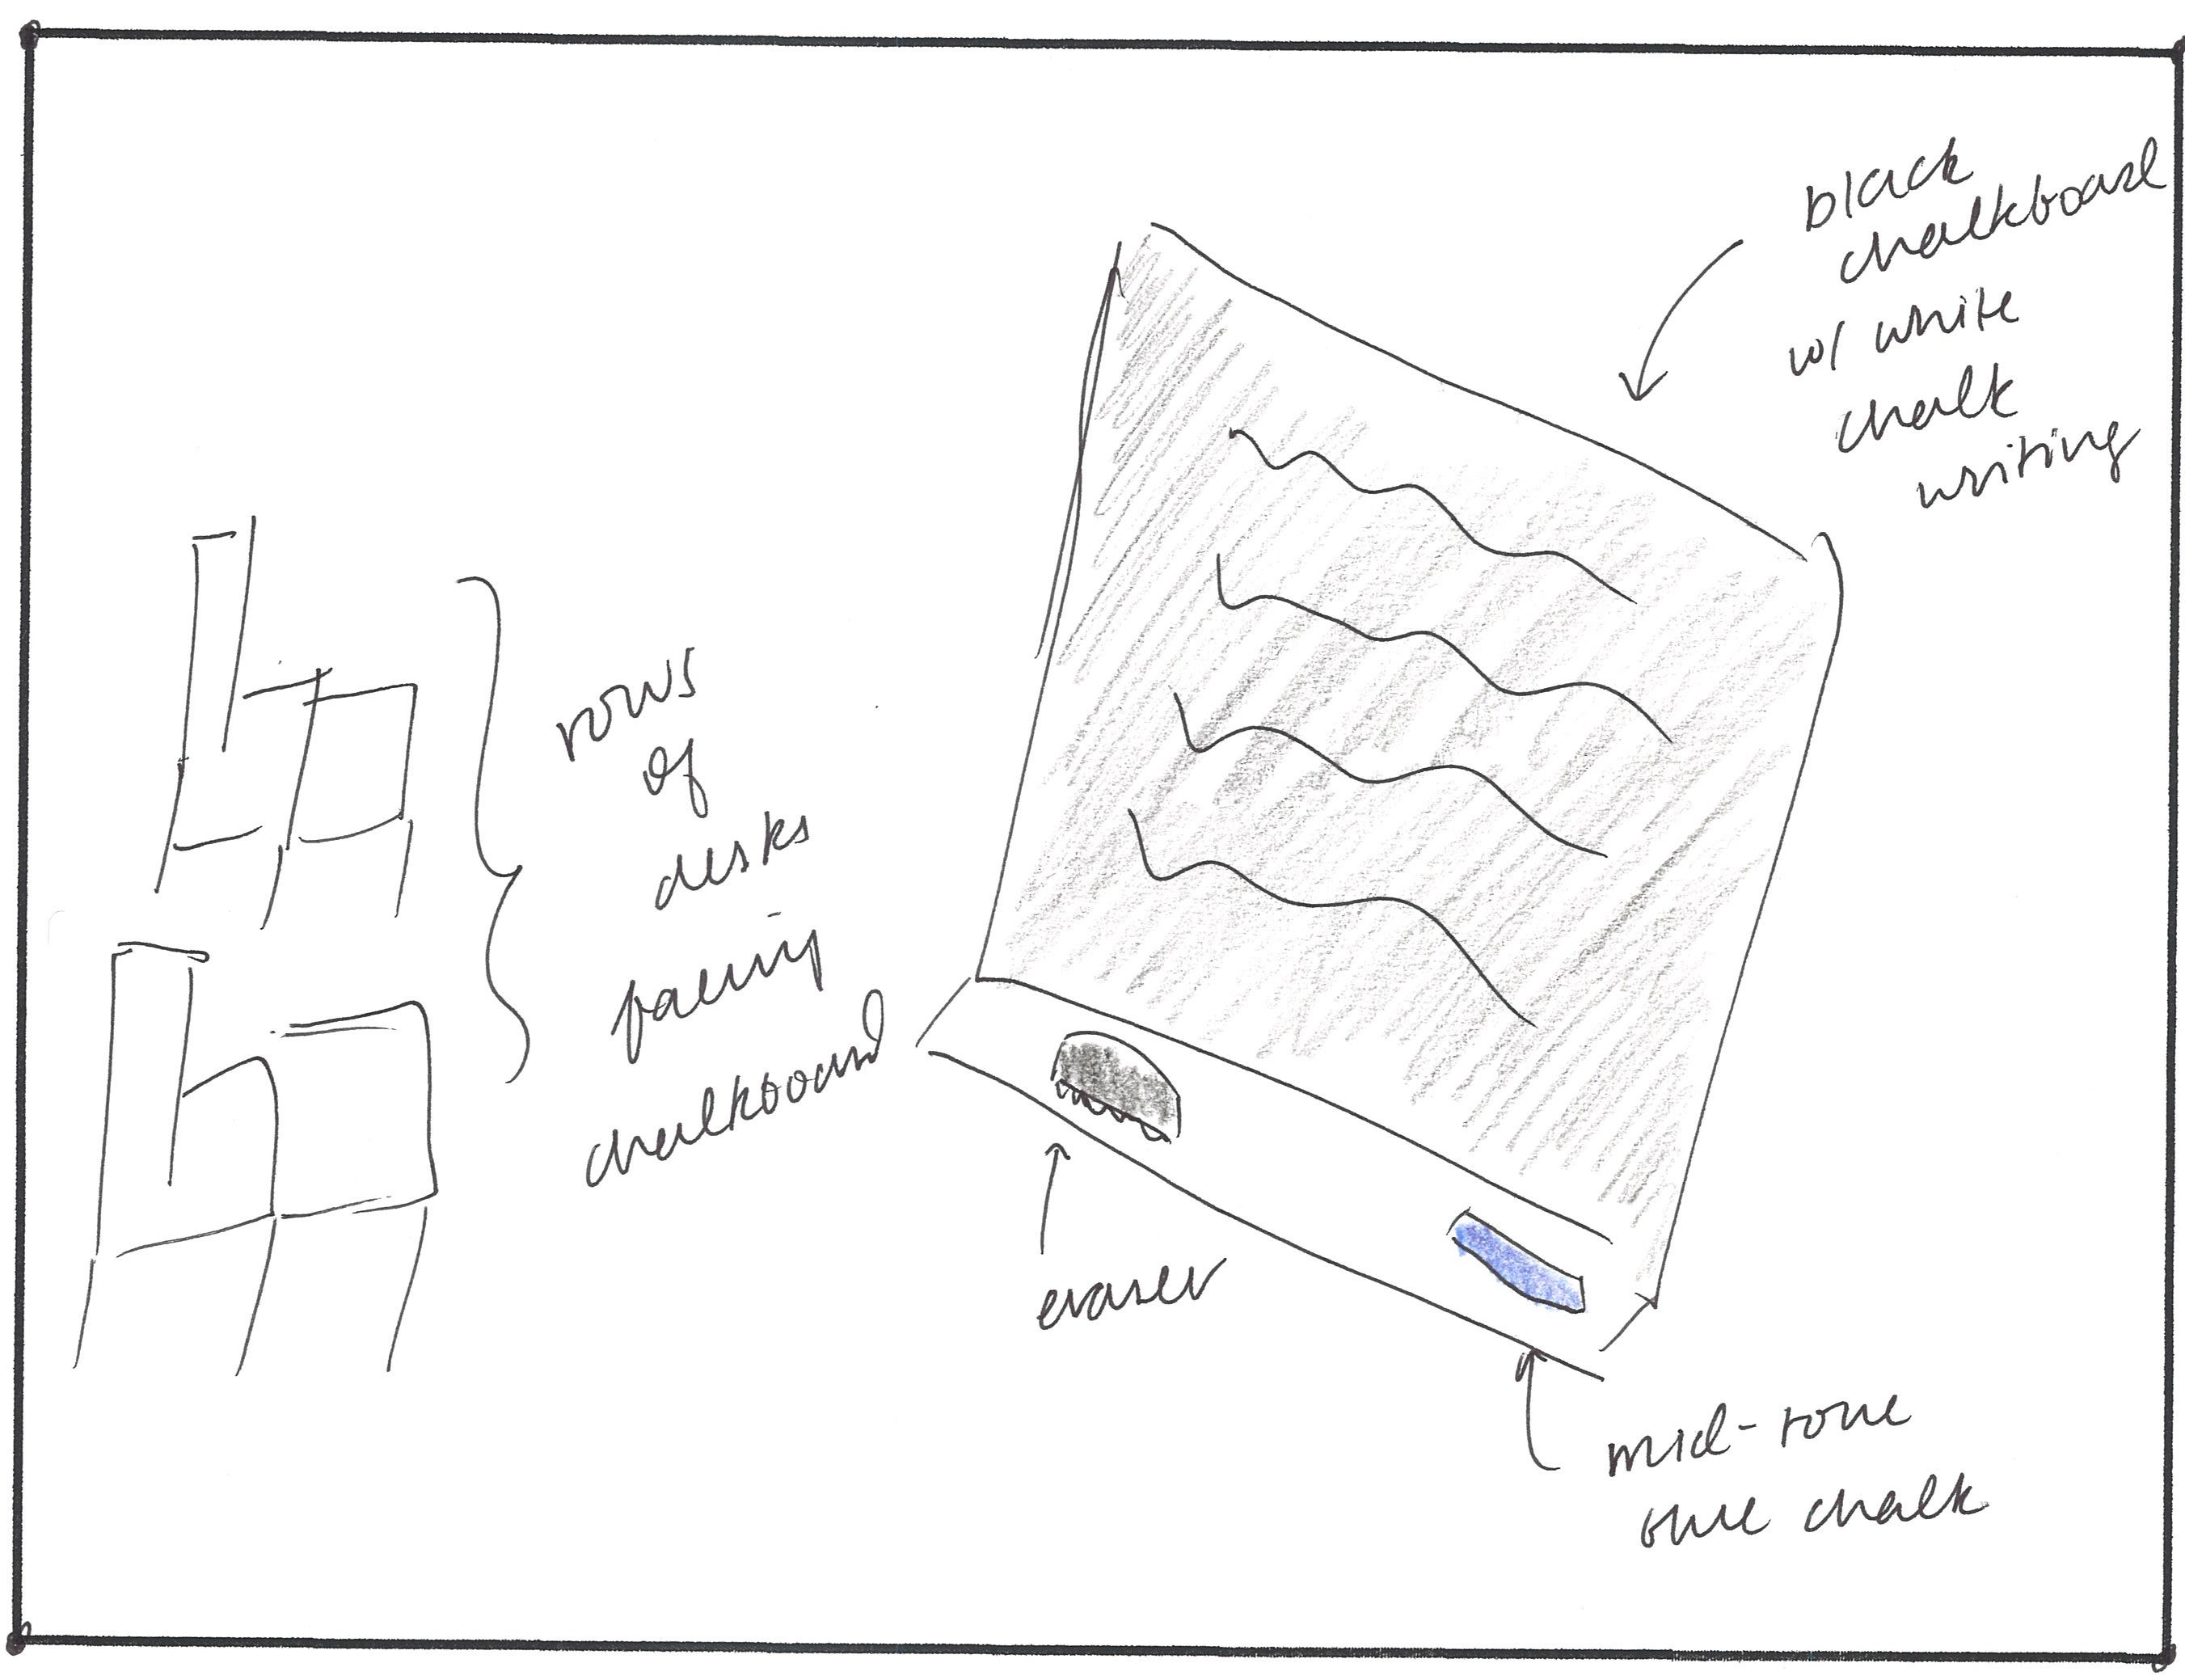 black
chalkboard
w/ white
chalk
writing
rows
of
desks
facing
chalkboard
eraser
mid-tone
blue chalk